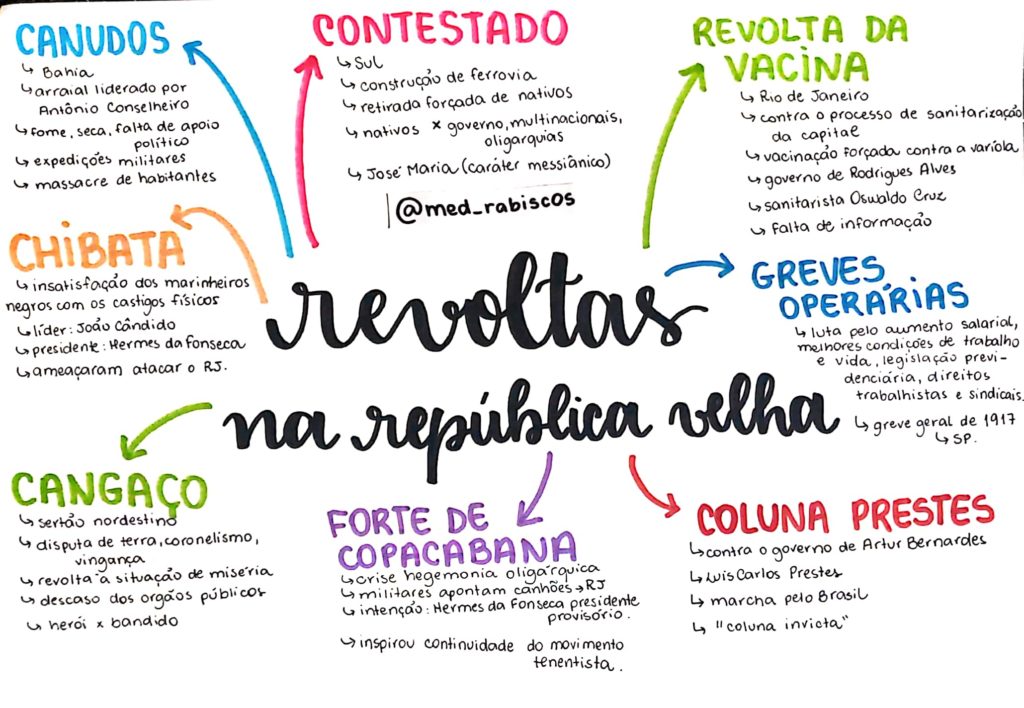 CANUDOS
↳ Bahia
↳ arraial liderado por
Antônio Conselheiro
↳ fome, seca, falta de apoio
político
↳ expedições militares
↳ massacre de habitantes
CONTESTADO
↳ Sul
↳ construção de ferrovia
↳ retirada forçada de nativos
↳ nativos x governo, multinacionais,
oligarquias
↳ José Maria (caráter messiânico)
@med_rabiscos
REVOLTA DA
VACINA
↳ Rio de Janeiro
↳ contra o processo de sanitarização
da capital
↳ vacinação forçada contra a varíola
↳ governo de Rodrigues Alves
↳ sanitarista Oswaldo Cruz
↳ falta de informação
CHIBATA
↳ insatisfação dos marinheiros
negros com os castigos físicos
↳ líder: João Cândido
↳ presidente: Hermes da fonseca
↳ ameaçaram atacar o RJ.
revoltas
na república velha
GREVES
OPERÁRIAS
↳ luta pelo aumento salarial,
melhores condições de trabalho
e vida, legislação previ-
denciária, direitos
trabalhistas e sindicais.
↳ greve geral de 1917
↳ SP.
CANGAÇO
↳ sertão nordestino
↳ disputa de terra, coronelismo,
vingança
↳ revolta à situação de miséria
↳ descaso dos orgãos públicos
↳ herói x bandido
FORTE DE
COPACABANA
↳ crise hegemonia oligárquica
↳ militares apontam canhões → RJ
↳ intenção: Hermes da Fonseca presidente
provisório.
↳ inspirou continuidade do movimento
tenentista.
COLUNA PRESTES
↳ contra o governo de Artur Bernardes
↳ Luis Carlos Prestes
↳ marcha pelo Brasil
↳ "coluna invicta"